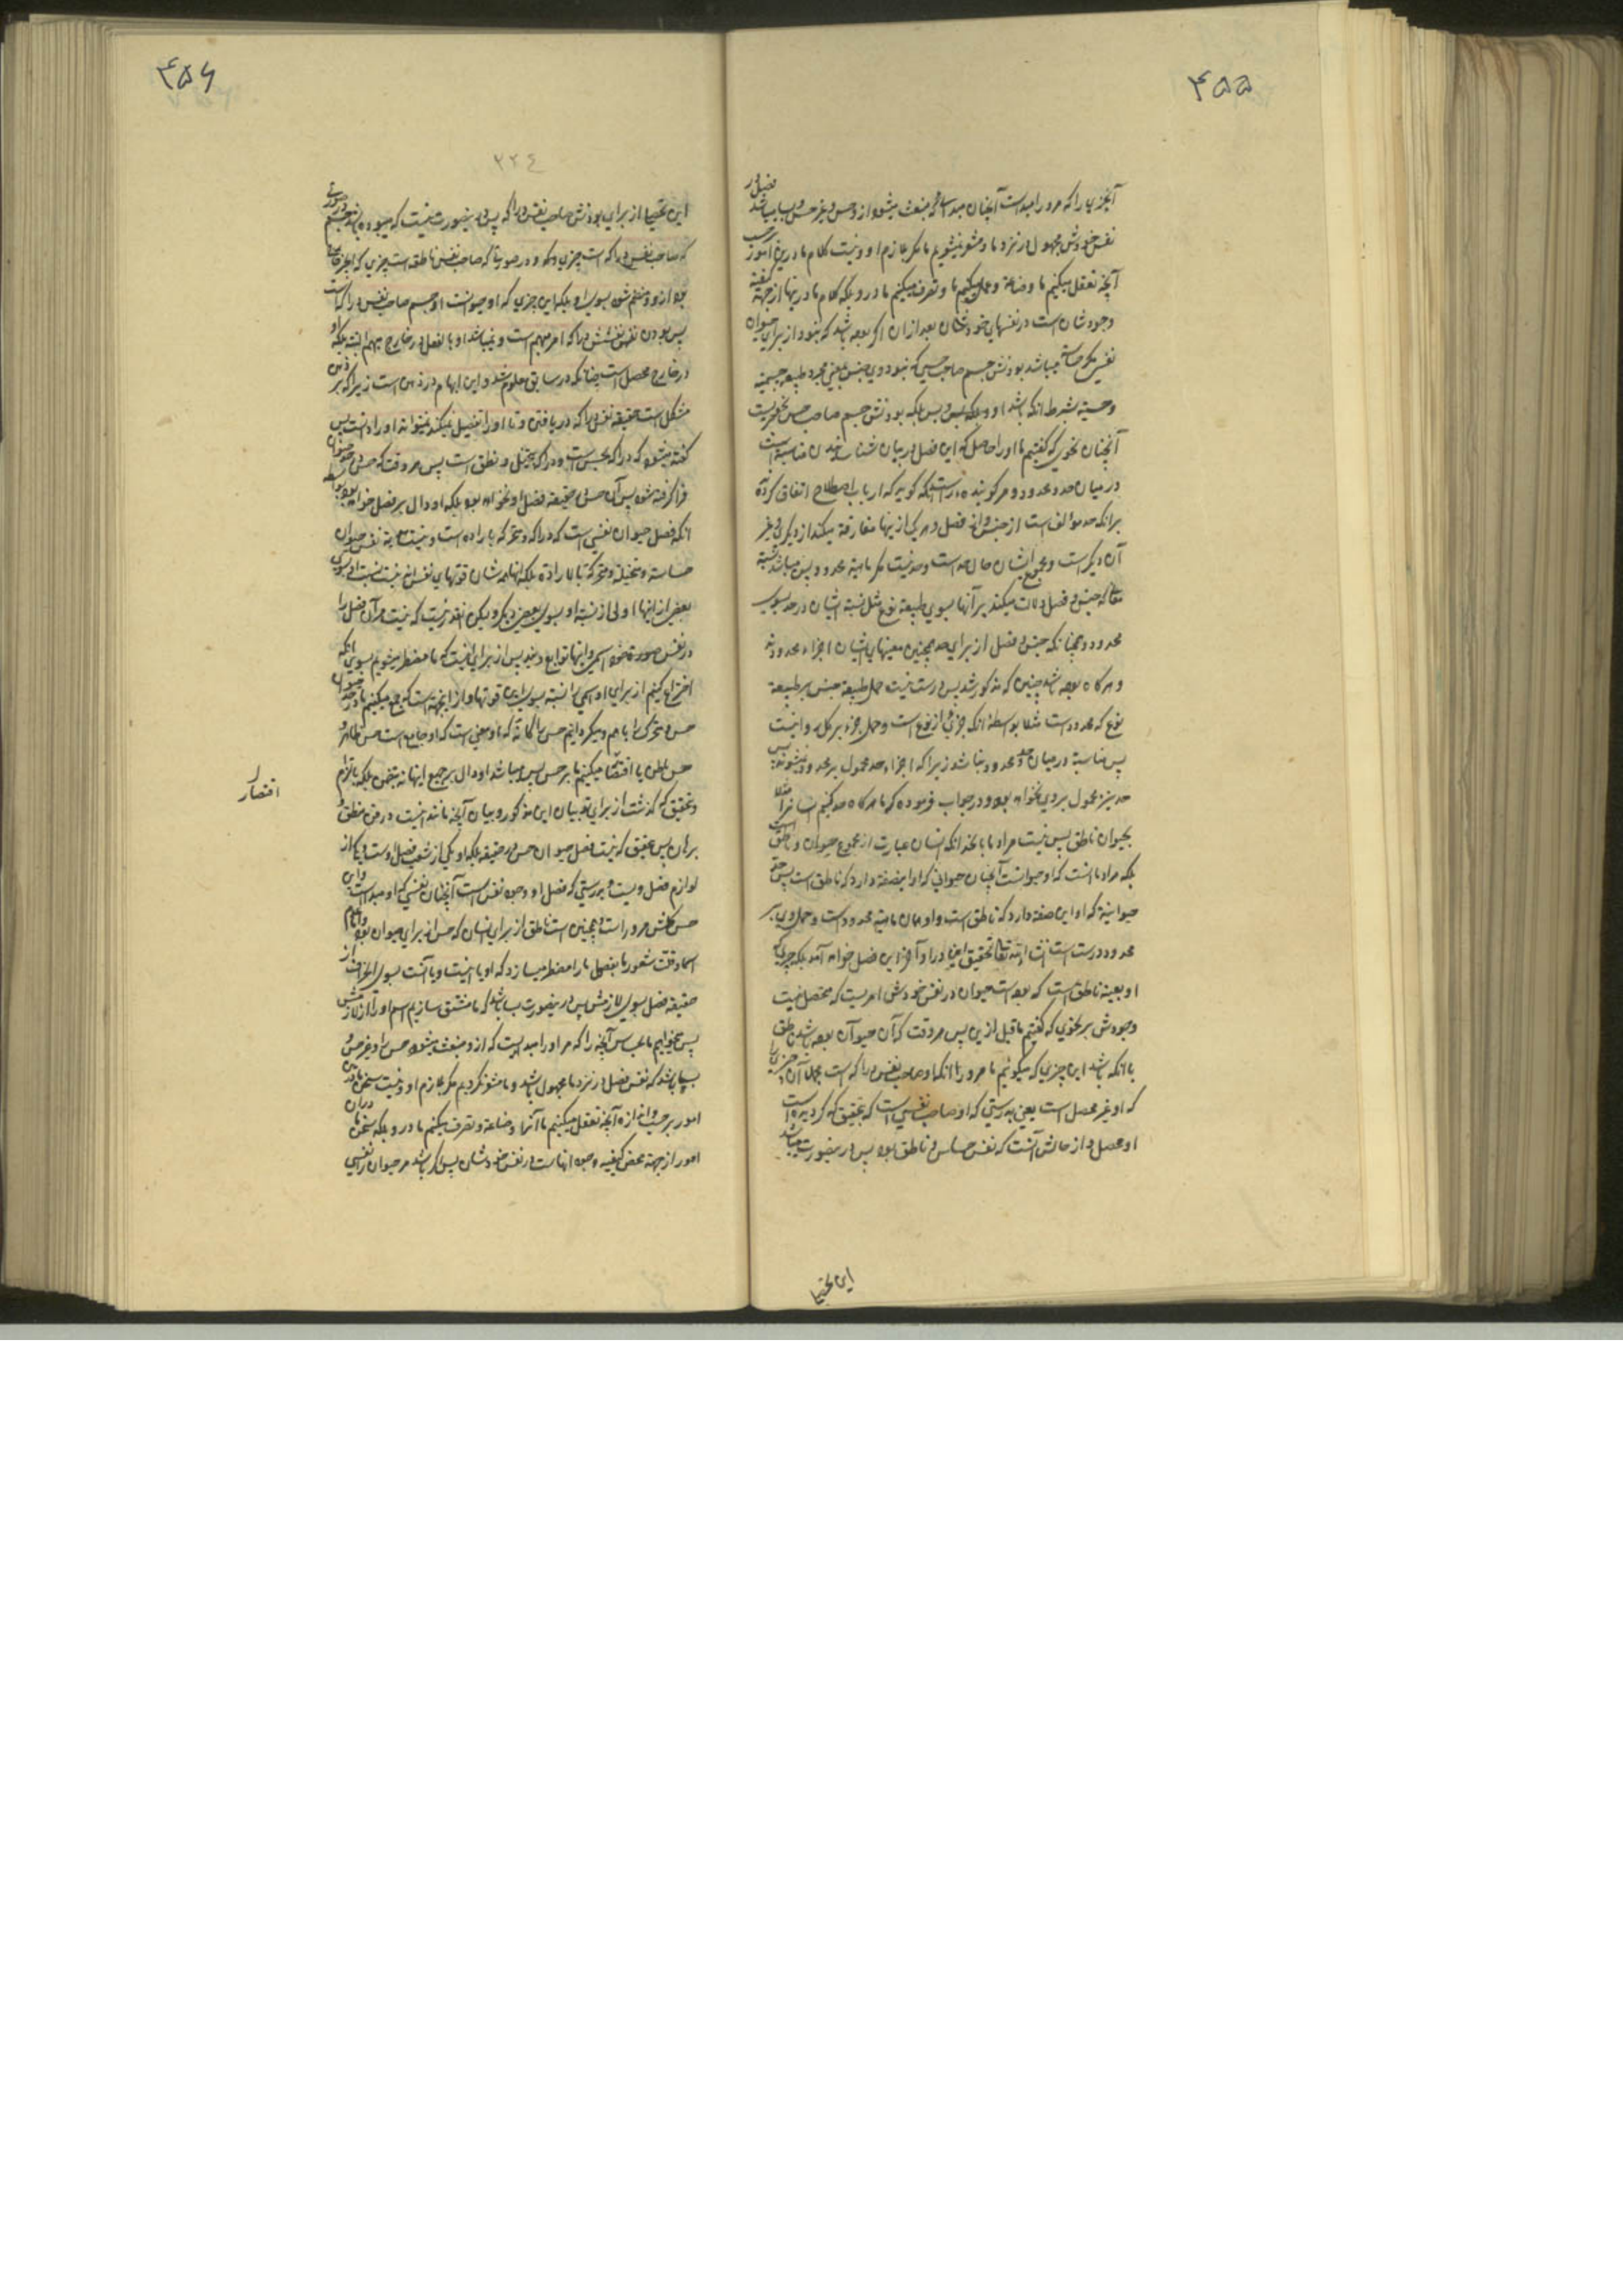 ۴۵۵
نفس خودش مجهول در نزد ما و مشعر نمیشویم ما مگر بلازم او و نیست کلام ما درین امور
آنچه تعقل میکنیم ما و صناعة و عمل میکنیم ما و تصرف میکنیم ما درو بلکه کلام ما درینها از جهة کیفیة
وجودشان است در نفسهای خودشان بعد از ان اگر بوده باشد که نبود از برای حیوان
نفس مگر حساسة میباشد بودنش جسم صاحب حسی که نبود وی جنس بمعنی مجرد طبیعة جسمیة
و حسیة بشرط آنکه باشد او و بلکه بس و بس بلکه بودنش جسم صاحب حس
آنچنان نحوی که گفتیم ما او را حاصل که این فصل در بیان شناساندن مناسبة است
در میان حد و محدود و مر گوینده را است اینکه گوید که ارباب اصطلاح اتفاق کرده
برانکه حد مؤلف است از جنس و از فصل و هر یکی از ینها مفارقة میکند از دیگری غیر
آن دیگر است و مجموع ایشان حال حد است و حد نیست مگر ماهیة محدود پس میباشد نسبة
معانی که جنس و فصل دلالت میکند بر آنها بسوی طبیعة نوع مثل نسبة ایشان در حد بسوی
محدود و همچنانکه جنس و فصل از برای حد همچنین معنیهای ایشان اجزاء محدودند
و هرگاه بوده باشد چنین که مذکور شد پس درست نیست حمل طبیعة جنس بر طبیعة
نوع که محدود است مثلا بواسطه آنکه جزئی از نوع است و حمل جزء بر کل روا نیست
پس مناسبة در میان حد و محدود نباشد زیرا که اجزاء حد محمول بر محدود نمیشوند پس
حد نیز محمول بر وی نخواهد بود و در جواب فرموده که ما هرگاه حد کنیم انسان را مثلا
بحیوان ناطق پس نیست مراد ما باینحد آنکه انسان عبارت از مجموع حیوان و ناطق است
بلکه مراد ما آنست که او حیوانست آنچنان حیوانی که او این صفة دارد که ناطق است پس حد
حیوانیة که او این صفة دارد که ناطق است و او همان ماهیة محدود است و حمل وی بر
محدود درست است انشاء الله تعالی تحقیق این را در آخر این فصل خواهد آمد بلکه چیزی که
او بعینه ناطق است که بوده است حیوان در نفس خودش امریست که محصل نیست
وجودش بر نحوی که گفتیم ما قبل ازین پس هر وقت که آن حیوان بوده باشد ناطق
باانکه باشد این چیزی که میگوئیم ما مر ورا آنکه او صاحب نفس دراکه است مجملا آن چیزی
که او غیر محصل است یعنی بدرستی که او صاحب نفسی است که بتحقیق که گردیده است
او محصل و از حالش آنست که نفس حساس و ناطق بود پس درینصورت میباشد
این تحصیلا
۴۵۶
۲۲۴
این تحصیلا از برای بودنش صاحب نفس دراکه پس درینصورت نیست که میبوده باشد جسم
پس بودن نفس نفسش دراکه امر مبهم است و نمیباشد او بالفعل در خارج مبهم البته بلکه او
در خارج محصل است چنانکه در سابق معلوم شد و این ابهام در ذهن است زیرا که بر ذهن
مشکل است حقیقة نفس دراکه در یافتن و تا او را تفصیل نمیکند نمیتواند او را دانست پس
گفته میشود که دراکه بحس است و دراکه بتخیل و نطق است پس هر وقت که حس در حد حیوان
فراگرفته شود پس آن حس در حقیقة فصل او نخواهد بود بلکه او دال بر فصل خواهد بود بواسطه
آنکه فصل حیوان نفسی است که دراکه و متحرکه باراده است و نیست هویة نفس حیوان
حساسة و متخیلة و متحرکة بالارادة بلکه اینها همه شان قوتهای نفس‌اند نیست نسبت او بسوی
بعض از اینها اولی از نسبة او بسوی بعض دیگر ولیکن اینقدر نیست که نیست مر آن فصل را
در نفس خودش اسمی و اینها توابع ویند پس از برای اینست که ما مضطر میشویم بسوی آنکه
اختراع کنیم از برای او اسمی را نسبة بسوی این قوتها و از اینجهة است که جمع میکنیم ما در حد حیوان
حس و تحرک را با هم و میگردانیم حس را گاه که او معنی است که او جامع است حس ظاهر و
حس باطن یا اقتصار میکنیم ما بر حس پس میباشد او دال بر جمیع اینها نه بتضمن بلکه بالتزام
اقتصار
و بتحقیق که گذشت از برای تو بیان این مذکور و بیان آنچه مانند اینست در فن منطق
بران پس بتحقیق که نیست فصل حیوان حس در حقیقة بلکه او یکی از شعب فصل اوست و یکی از
لوازم فصل ویست و بدرستی که فصل او وجود نفس است آنچنان نفسی که او مبدأ است و این
حس همگیش مر وراست و همچنین است ناطق از برای انسان که حس از برای حیوان بود
حقیقة فصل بسوی لازمش پس درینصورت بسا باشد که ما مشتق سازیم اسم او را از لازمش
پس میخواهیم ما بحساس آنچه را که مر او را مبدایست که از و منبعث میشود حس را و غیر حس و
بسا باشد که نفس فصل در نزد ما مجهول باشد و ما مشعر نگردیم مگر بلازم او و نیست سخن ما درین
امور بر حسب و اندازه آنچه تعقل میکنیم ما آنها را و صناعة و تصرف میکنیم ما درو بلکه سخن ما دران
امور از جهة محض کیفیة وجود آنهاست در نفس خودشان پس اگر باشد مر حیوان را نفسی